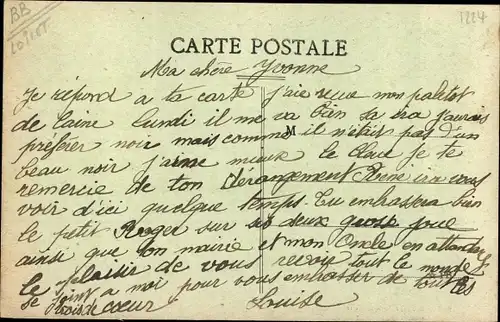 BB
LOIRET
1224
CARTE POSTALE
Ma chère Yvonne
Je répond a ta carte j'aie reçue mon paletot
de laine lundi il me va bien sa ira j'aurais
préférer noir mais comme il n'étais pas d'un
beau noir j'aime mieux le je te
remercie de ton Dérangement ira vous
voir d'ici quelque temps. Tu embrassera bien
le petit Roger sur ses deux grosse joue
ainsi que ton mairie et mon Oncle en attendant
le plaisir de vous revoir tout le monde
se joint a moi pour vous embrasser de tout
de coeur Louise